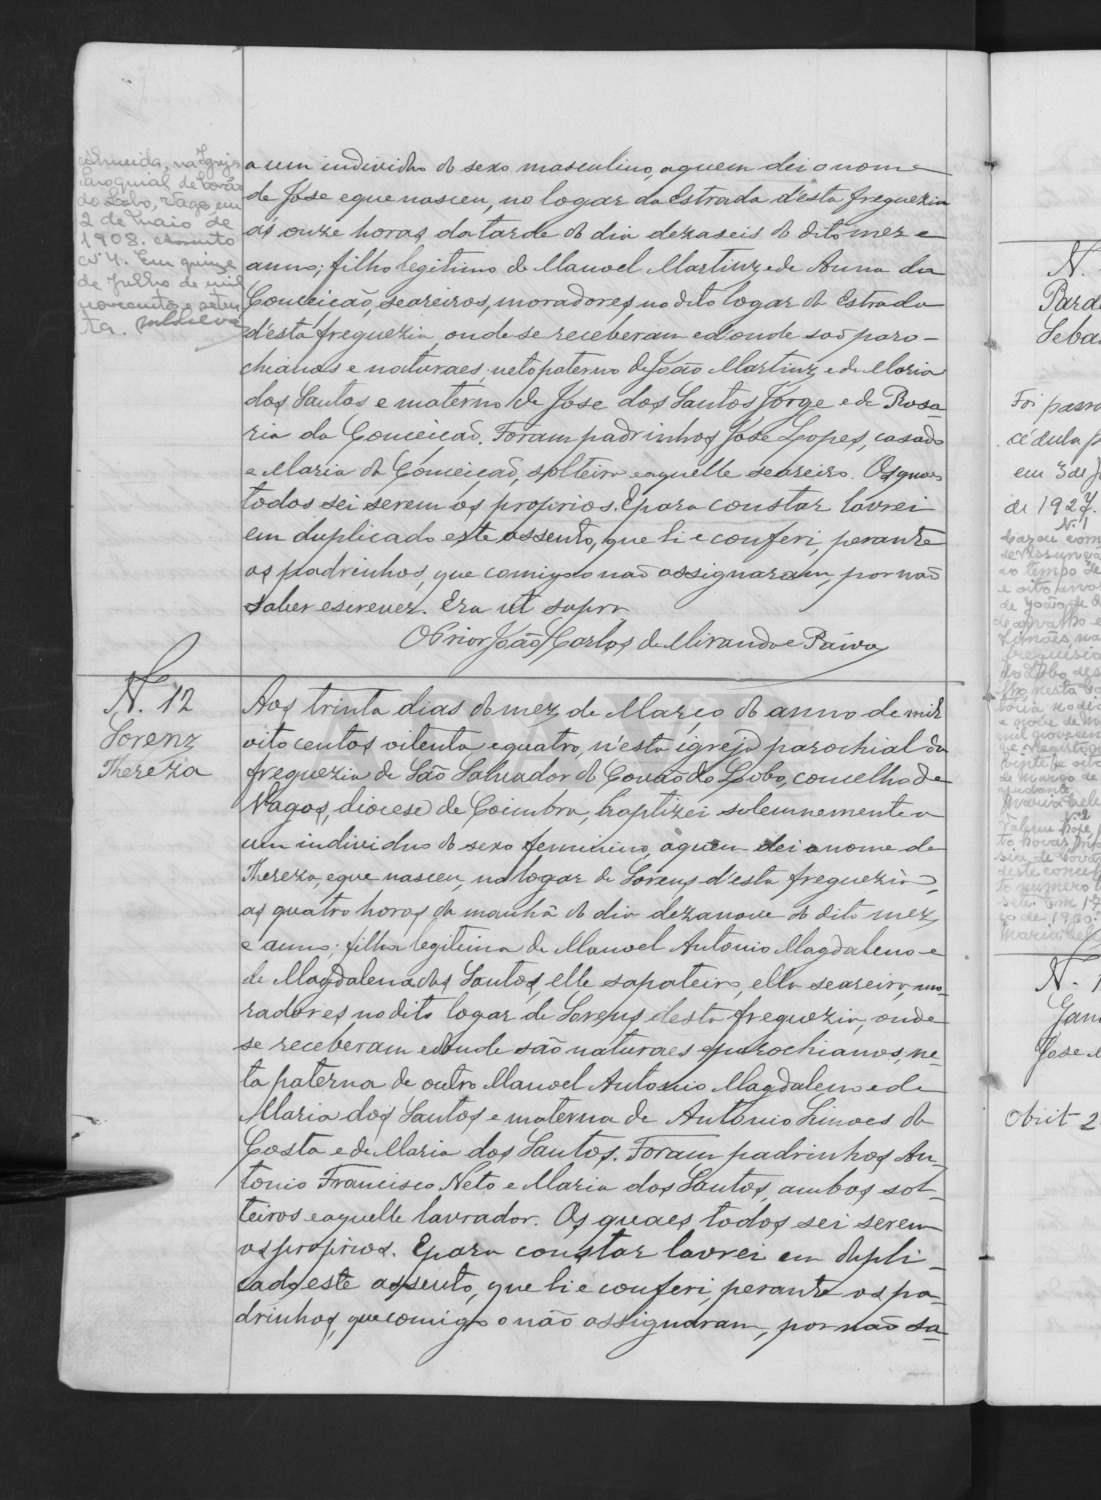 Almeida, na Igreja
Paroquial de Covão
do Lobo, Vagos em
2 de Maio de
1908. Assento
nº 4. Em quinze
de Julho de mil
novecentos e seten
ta.
a um individuo do sexo masculino, a quem dei o nome
de José e que nasceu, no logar da Estrada d'esta freguezia
ás onze horas da tarde do dia dezaseis do dito mez e
anno; filho legitimo de Manoel Martinz e de Anna da
Conceicão, seareiros, moradores no dito logar da Estrada
d'esta freguezia, onde se receberam e d'onde são paro-
chianos e naturaes, neto paterno de João Martinz e de Maria
dos Santos e materno de Jose dos Santos Jorge e de Rosa-
ria da Conceicão. Foram padrinhos José Lopes, casado
e Maria da Conceicão, solteira e aquelle seareiro. Os quaes
todos sei serem os proprios. E para constar lavrei
em duplicado este assento, que li e conferi, perante
os padrinhos, que comigo o não assignaram, por não
saber escrever. Era ut supra
O Prior João Carlos de Miranda e Paiva
N. 12
Lorenz
Thereza
Aos trinta dias do mez de Marco do anno de mil
oito centos oitenta e quatro, n'esta igreja parochial da
freguezia de São Salvador do Covão do Lobo, concelho de
Vagos, diocese de Coimbra, baptizei solemnemente a
um individuo do sexo feminino, a quem dei o nome de
Thereza, e que nasceu, no logar de Lorenz d'esta freguezia,
as quatro horas da manhã do dia dezanove do dito mez,
e anno; filha legitima de Manoel Antonio Magdaleno e
de Magdalena dos Santos, elle sapateiro, ella seareira, mo-
radores no dito logar de Lorenz desta freguezia, onde
se receberam e donde são naturaes e parochianos, ne-
ta paterna de outro Manoel Antonio Magdaleno e de
Maria dos Santos e materna de Antonio Simoes da
Costa e de Maria dos Santos. Foram padrinhos An-
tonio Francisco Neto e Maria dos Santos, ambos sol-
teiros e aquelle lavrador. Os quaes todos sei serem
os proprios. E para constar lavrei em dupli-
cado este assento, que li e conferi, perante os pa-
drinhos, que comigo o não assignaram, por não sa-
N.
Parda
Sebas
Foi passa
cédula p
em 3 de J
de 1927.
Nº 1
Casou com
ao tempo de
e oito anos
de João de
Nº 2
N. 1
Gan
Jose
Obiit 2